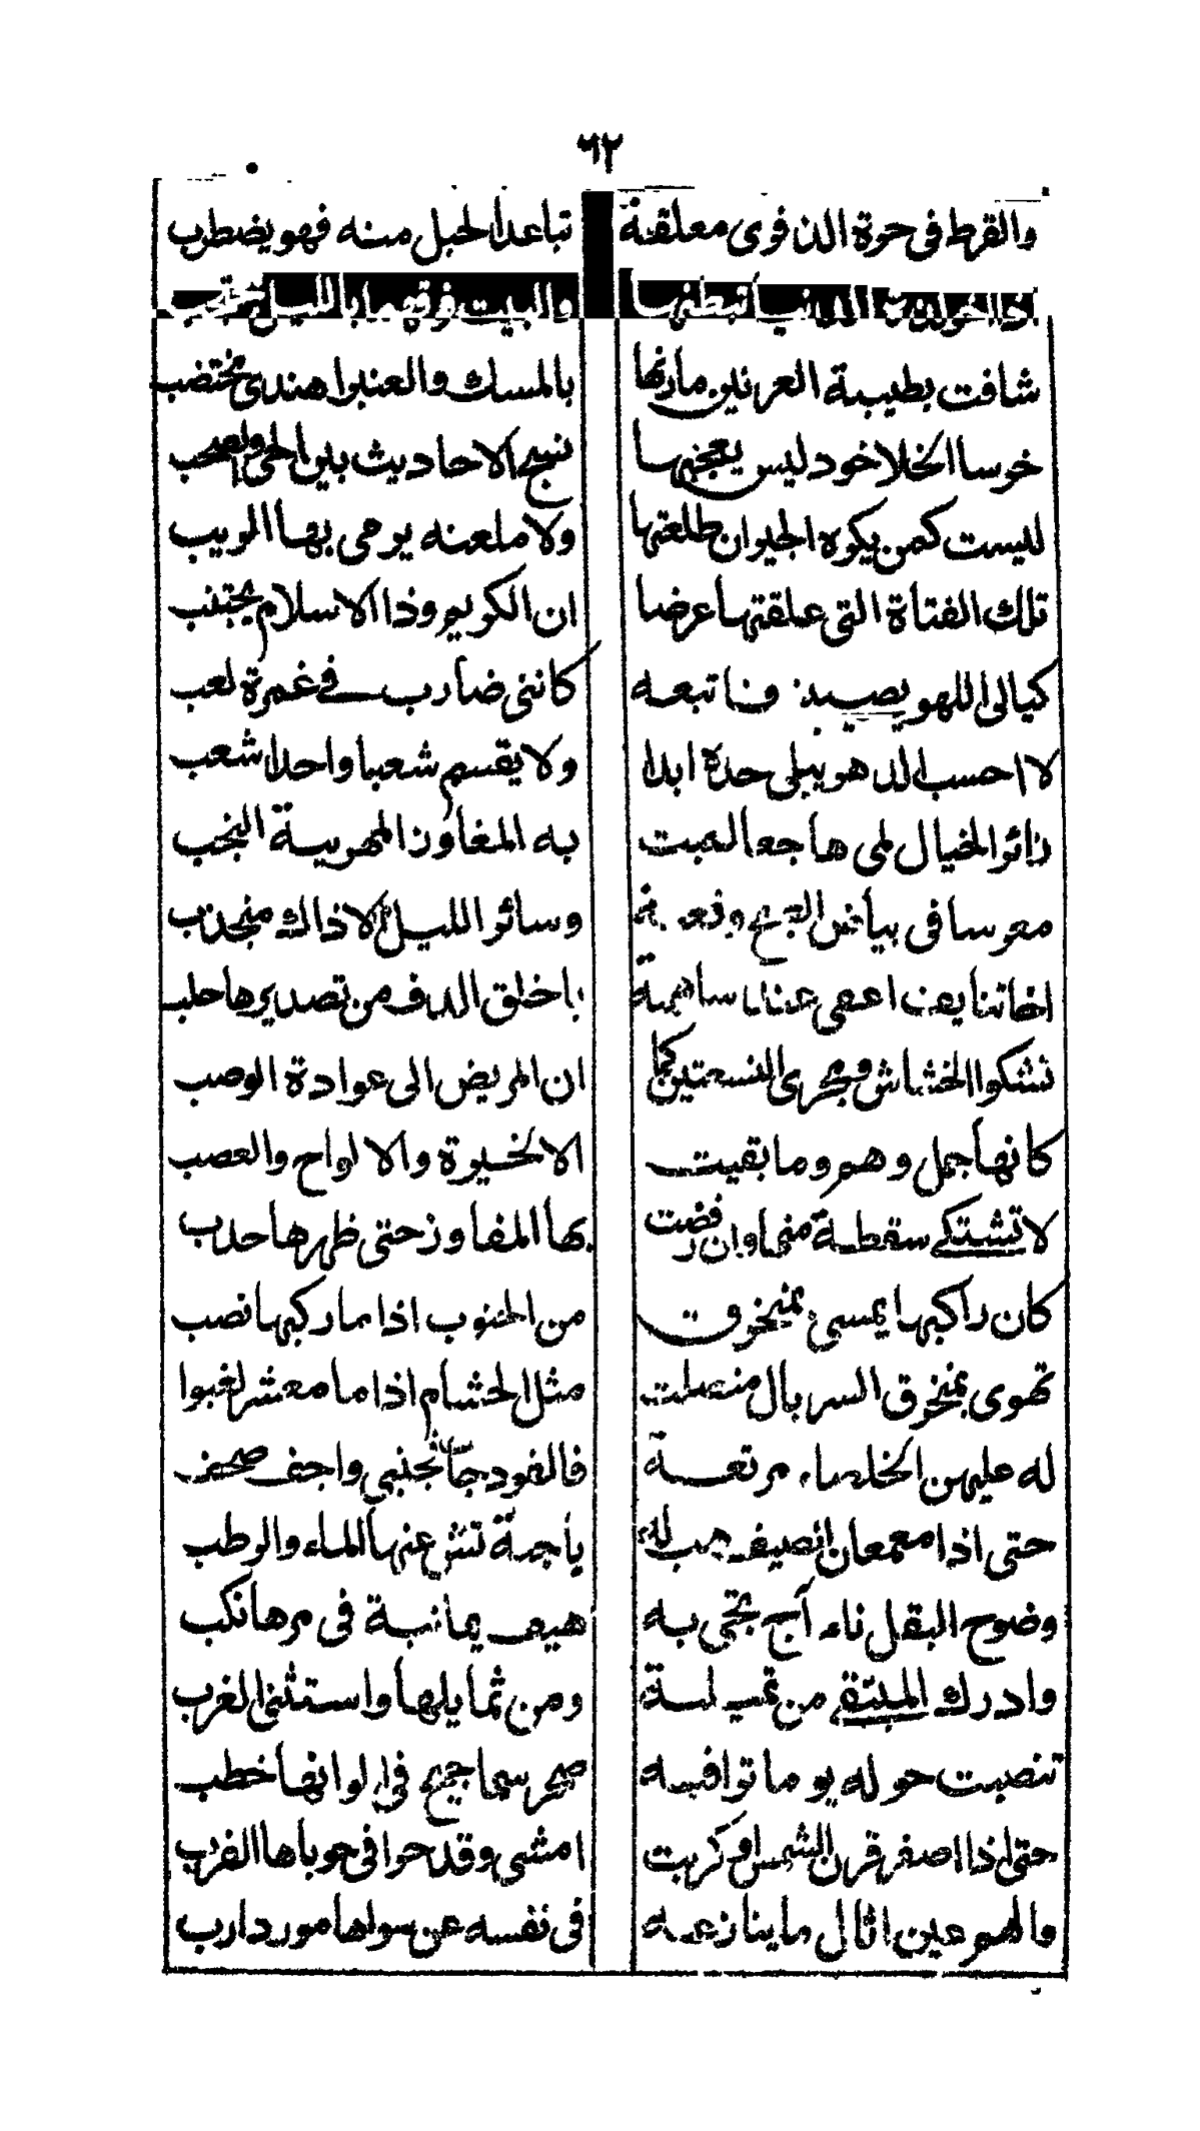 ٦٢
والقرط فى حرة الذفرى معلقة تباعد الحبل منه فهو يضطرب
اذا اخو لذة الدنيا تبطنها والبيت فوقهما بالليل محتجب
شافت بطيبة العرنين مارنها بالمسك والعنبر الهندى مختضب
خرسا الخلاخود ليس يعجنها نسج الاحاديث بين الحى والصخب
ليست كمن يكره الجيران طلعتها ولا ملعنه يرمى بها الريب
تلك الفتاة التى علقتها عرضا ان الكريم وذا الاسلام يجتنب
ليالى اللهو يصبينى فاتبعه كاننى ضارب فى غمرة لعب
لا احسب الدهر يبلى جدة ابدا ولا يقسم شعبا واحدا شعب
زائر الخيال لمى هاجعا لعبت به المفاوز المهرية النجب
معرسا فى بياض الصبح وقعته وسائر الليل الا ذاك منجذب
اخا تنايف اغفى عند ساهمة باخلق الدف من تصديرها جلب
تشكوا الخشاش ومجرى النسعتين كما ان المريض الى عواده الوصب
كانها جمل وهم وما بقيت الا النحيزة والالواح والعصب
لا تشتكى سقطة منها وان رقصت بها المفاوز حتى ظهرها حدب
كان راكبها يمسى بمنخرق من الجنوب اذا ما ركبها نصب
تهوى بمنخرق السربال منصلت مثل الحسام اذا ما معشر لغبوا
له عليهن بالخلصاء مرتعة فالفودجات فجنبى واجف صخب
حتى اذا معمعان الصيف هب له ياجة تنش عنها الماء والرطب
وضوح البقل ناء آج تجى به هيف يمانية فى مرها نكب
وادرك المبتقى من ثميلته ومن ثمايلها واستنشى الغرب
تنصبت حوله يوما تراقبه صحر سماحيج فى الوانها خطب
حتى اذا اصفر قرن الشمس او كربت امسى وقد جوا فى حوباها القرب
والهم عين اثال ما ينازعه فى نفسه عن سواها مورد ارب